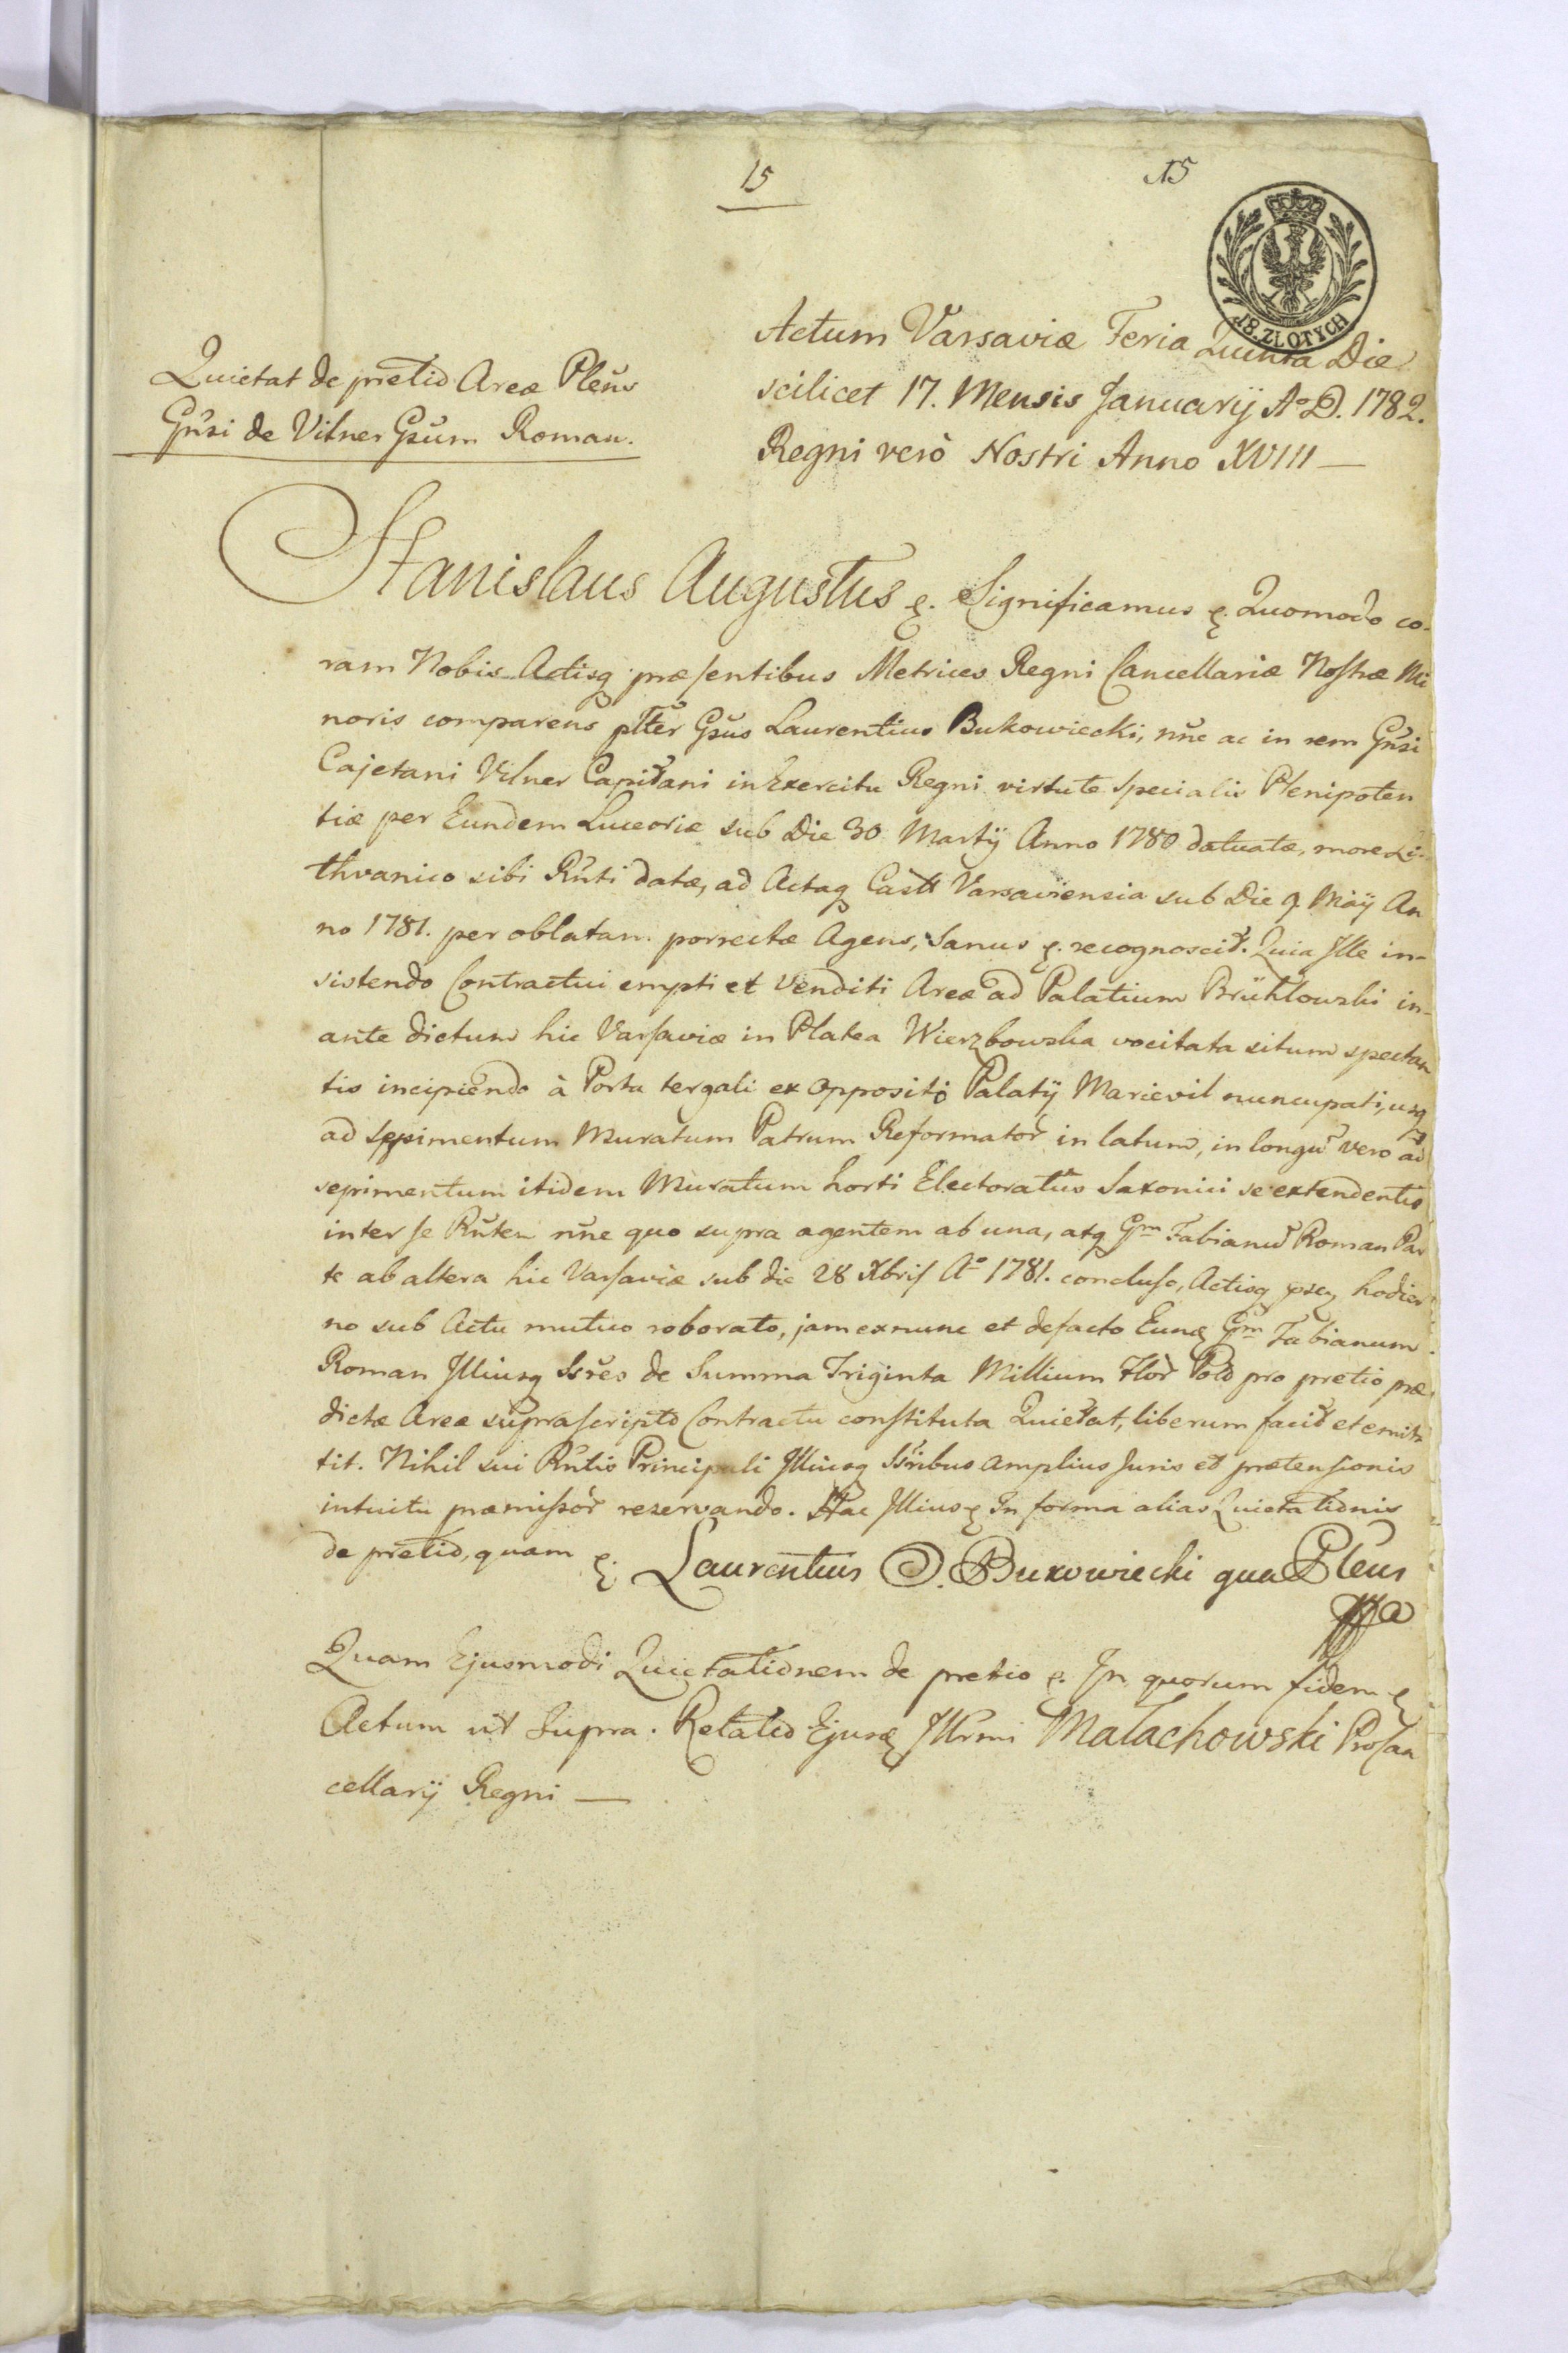 15
15
18. ZŁOTYCH
Actum Varsaviæ Feria Quinta Die
scilicet 17. Mensis Januarÿ A°D. 1782.
Regni verò Nostri Anno XVIII —
Quietat de pretio Areæ Pleňs
Gňsi de Vilner Gsum Roman.
Stanislaus Augustus ꝛ. Significamus ꝛ. Quomodo co-
ram Nobis Actisq præsentibus Metrices Regni Cancellariæ Nostræ Mi
noris comparens plter Gsus Laurentius Bukowiecki, nňe ac in rem Gňsi
Cajetani Vilner Capitani in Exercitu Regni virtute specialis Plenipoten
tiæ per Eundem Luceoriæ sub Die 30 Martÿ Anno 1780 datuatæ, more Li-
thvanico sibi Rňti datæ, ad Actaq Castt Varsaviensia sub Die 9 Maÿ An
no 1781. per oblatam porrectæ Agens, Sanus ꝛ. recognoscit. Quia Ille in-
sistendo Contractui empti et venditi Areæ ad Palatium Brühlowski in-
ante dictum hic Varsaviæ in Platea Wierzbowska vocitata situm spectan
tis incipiendo à Porta tergali ex opposito Palatÿ Marievil nuncupati, usq
ad sepimentum Muratum Patrum Reformator in latum, in longu vero ad
sepimentum itidem Muratum horti Electoratus Saxonici se extendentis
inter se Rňtem nňe quo supra agentem ab una, atq Gm Fabianum Roman Par
te ab altera hic Varsaviæ sub die 28 Xbris A° 1781. concluso, Actisq psq hodier
no sub Actu mutuo roborato, jam exnunc et defacto Eunq Gm Fabianum
Roman Illiusq Ssres de Summa Triginta Millium Flor Pol pro pretio præ
dictæ Areæ suprascripto Contractu constituta Quietat, liberum facit et emit
tit. Nihil sui Rňtis Principali Illiusq Ssribus amplius Juris et prætensionis
intuitu præmissor reservando. Hac Illius ꝛ In forma alias Quietationis
de pretio, quam ꝛ. Laurentius D. Bukowiecki qua Pleus
Quam Ejusmodi Quietationem de pretio ꝛ. In quorum fidem ꝛ
Actum ut Supra. Relatio Ejusq Illrmi Małachowski ProCan
cellarÿ Regni —